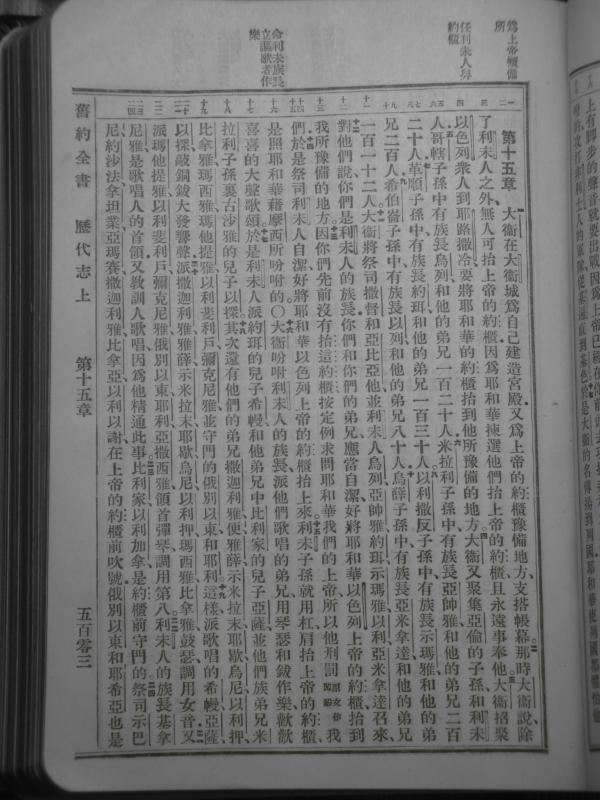 爲上帝櫃備所
任利未人舁約櫃
命利未族長立謳歌者作樂
第十五章 大衞在大衞城爲自己建造宮殿又爲上帝的約櫃豫備地方支搭帳幕那時大衞說除
了利未人之外無人可抬上帝的約櫃因爲耶和華揀選他們抬上帝的約櫃且永遠事奉他大衞招聚
以色列衆人到耶路撒冷要將耶和華的約櫃抬到他所豫備的地方大衞又聚集亞倫的子孫和利未
人哥轄子孫中有族長烏列和他的弟兄一百二十人米拉利子孫中有族長亞帥雅和他的弟兄二百
二十人革順子孫中有族長約珥和他的弟兄一百三十人以利撒反子孫中有族長示瑪雅和他的弟
兄二百人希伯崙子孫中有族長以列和他的弟兄八十人烏薛子孫中有族長亞米拿達和他的弟兄
一百一十二人大衞將祭司撒督和亞比亞他並利未人烏列亞帥雅約珥示瑪雅以列亞米拿達召來
對他們說你們是利未人的族長你們和你們的弟兄應當自潔好將耶和華以色列上帝的約櫃抬到
我所豫備的地方因你們先前沒有抬這約櫃按定例求問耶和華我們的上帝所以他刑罰我
們於是祭司利未人自潔好將耶和華以色列上帝的約櫃抬上來利未子孫就用杠肩抬上帝的約櫃
是照耶和華藉摩西所吩咐的〇大衞吩咐利未人的族長派他們歌唱的弟兄用琴瑟和鈸作樂歡歡
喜喜的大聲歌頌於是利未人派約珥的兒子希幔和他弟兄中比利家的兒子亞薩並他們族弟兄米
拉利子孫裏古沙雅的兒子以探其次還有他們的弟兄撒迦利雅便雅薛示米拉末耶歇烏尼以利押
比拿雅瑪西雅瑪他提雅以利斐利戶彌克尼雅並守門的俄別以東和耶利這樣派歌唱的希幔亞薩
以探敲銅鈸大發響聲派撒迦利雅雅薛示米拉末耶歇烏尼以利押瑪西雅比拿雅鼓瑟調用女音又
派瑪他提雅以利斐利戶彌克尼雅俄別以東耶利亞撒西雅領首彈琴調用第八利未人的族長基拿
尼雅是歌唱人的首領又教訓人歌唱因爲他精通此事比利家以利加拿是約櫃前守門的祭司示巴
尼約沙法拿坦業亞瑪賽撒迦利雅比拿亞以利以謝在上帝的約櫃前吹號俄別以東和耶希亞也是
舊約全書 歷代志上 第十五章 五百零三